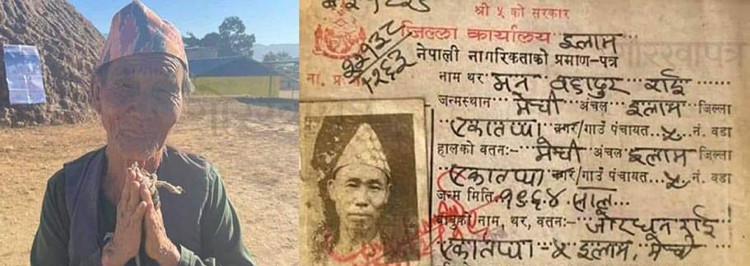 श्री ५ को सरकार
जिल्ला कार्यालय इलाम
नेपाली नागरिकताको प्रमाण-पत्र
ना. प्र.
नाम थर मन वहादुर राई
जन्मस्थान मेची अंचल इलाम जिल्ला
एकातप्पा नगर/गाउँ पंचायत ५ नं. वडा
हालको वतन:- मेची अंचल इलाम जिल्ला
एकातप्पा नगर/गाउँ पंचायत ५ नं. वडा
जन्म मिति १९६४ साल
बाबुको नाम, थर, वतन:- जोरधन राई
एकातप्पा - ५ इलाम, मेची
गोरखापत्र